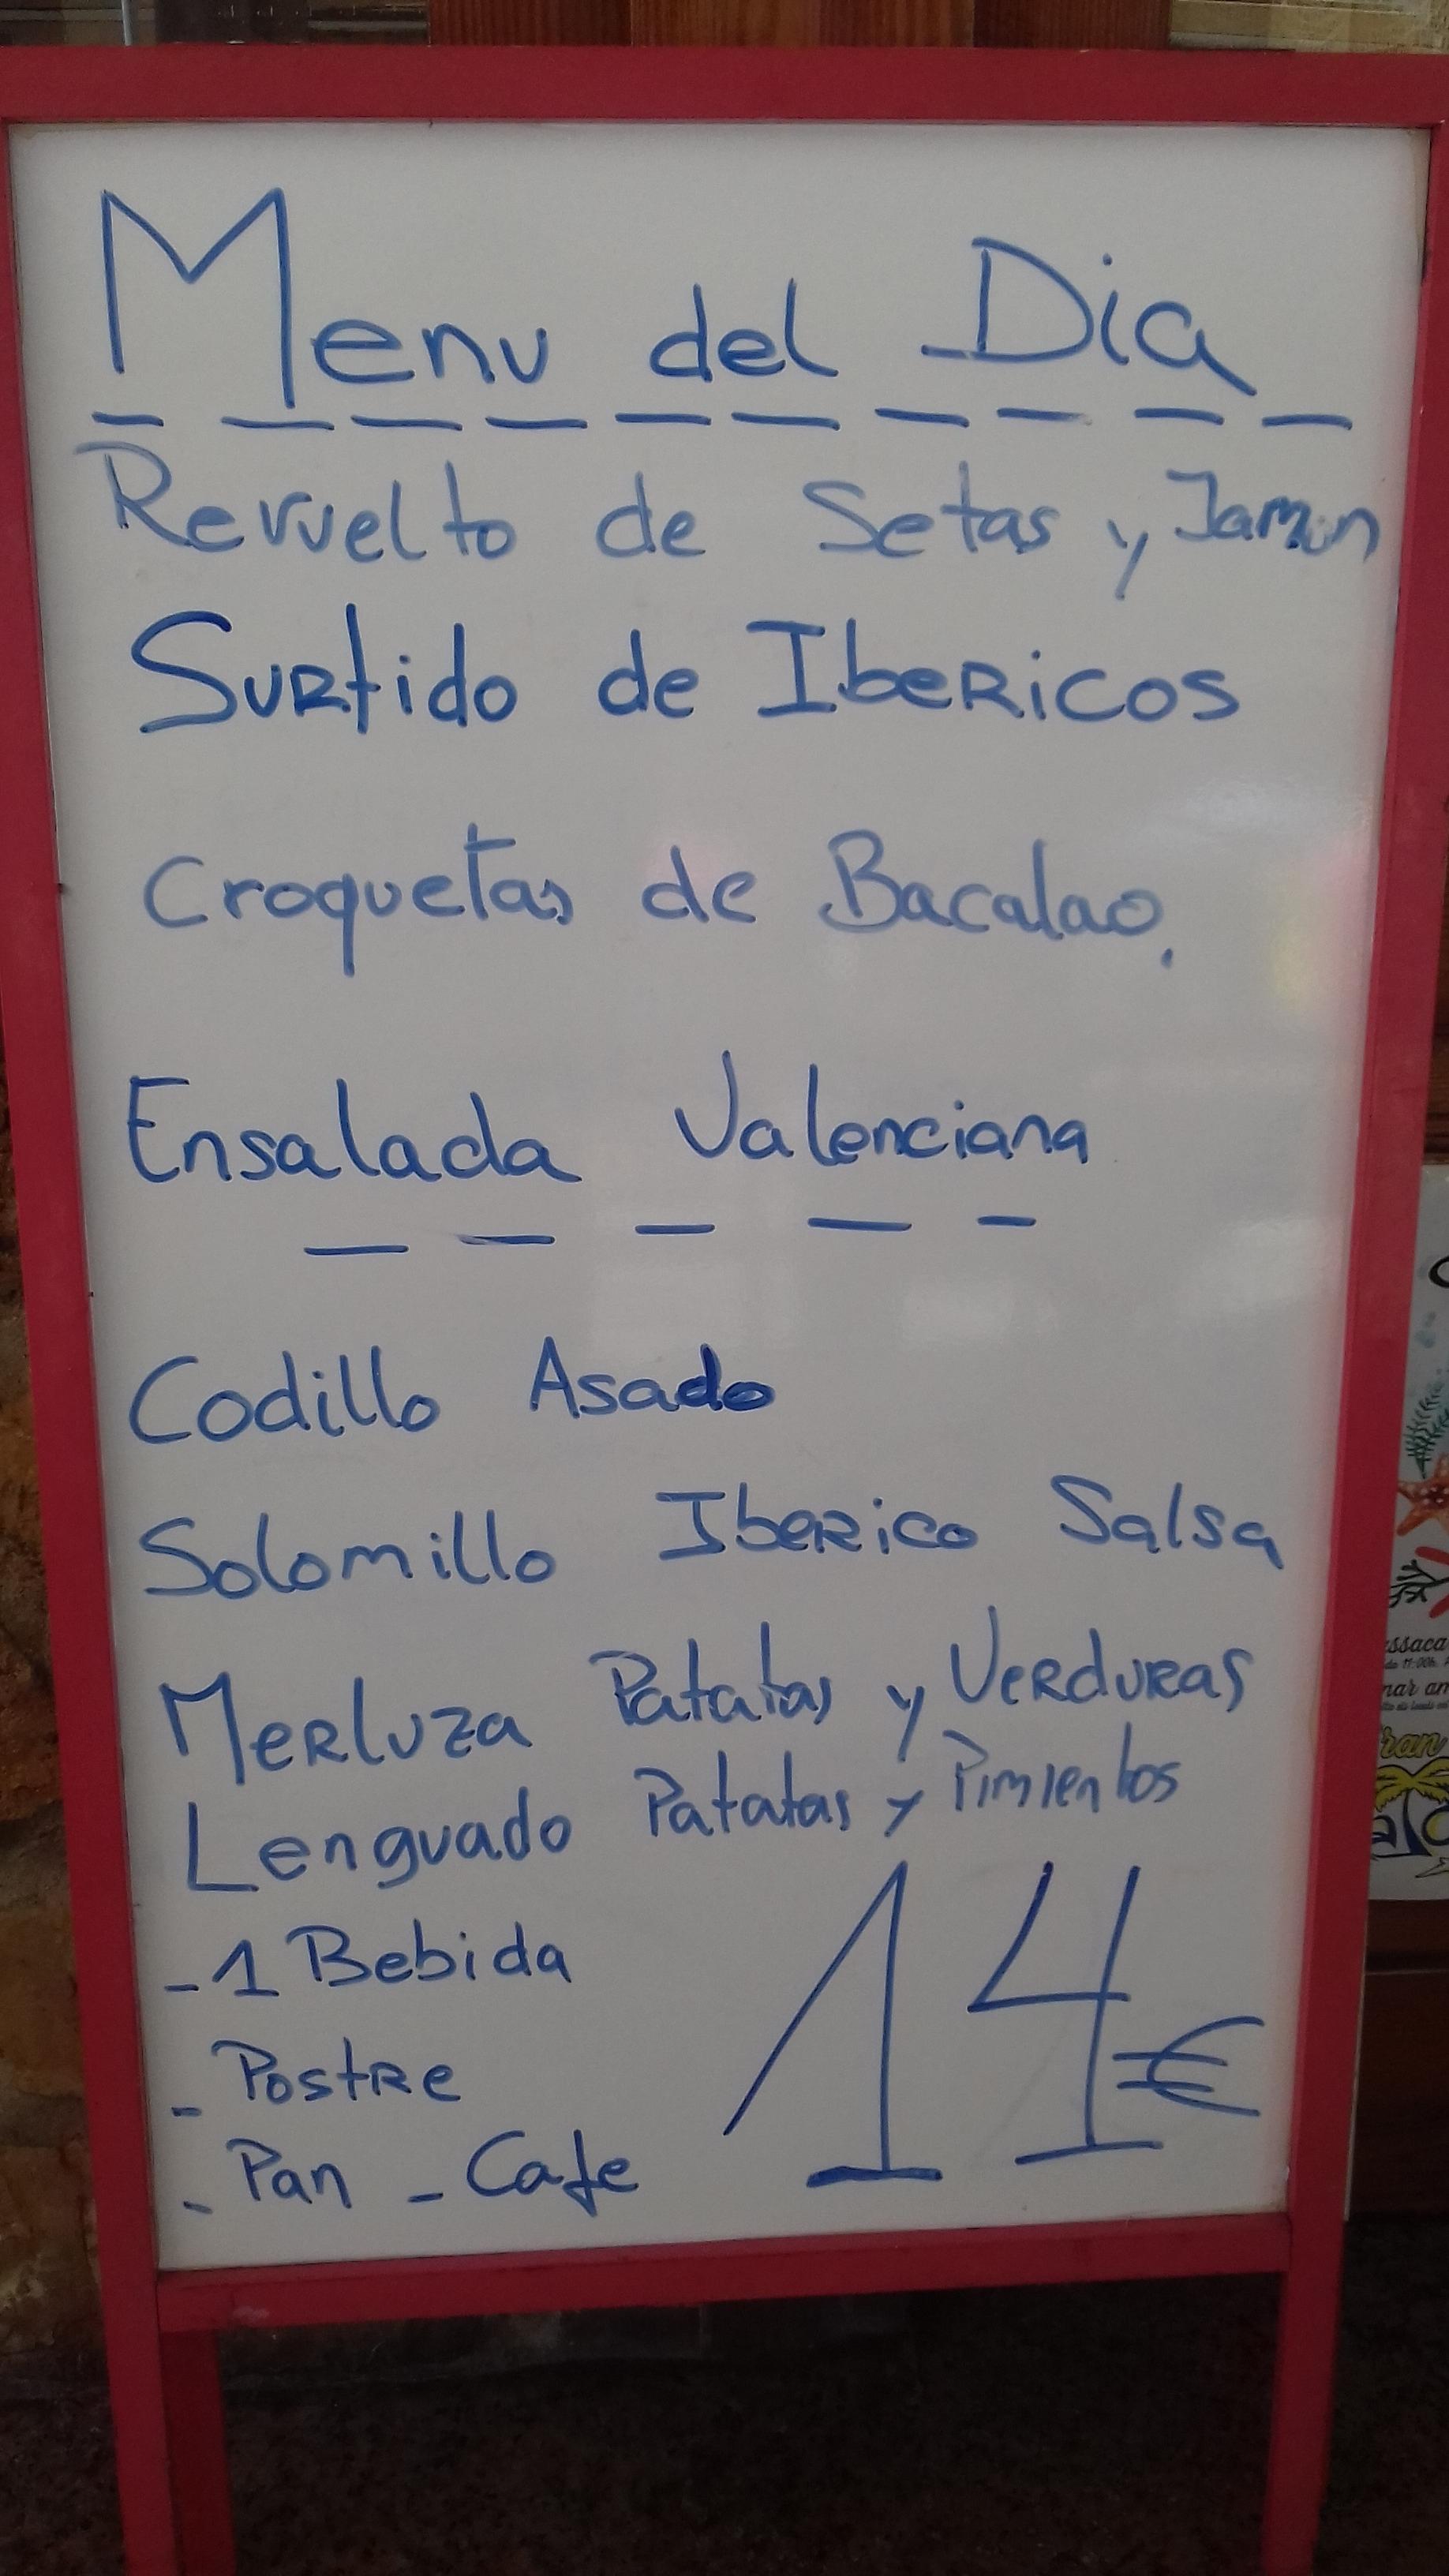 Menu del Dia
Revuelto de Setas y Jamon
Surtido de Ibericos
Croquetas de Bacalao.
Ensalada Valenciana
Codillo Asado
Solomillo Iberico Salsa
Merluza Patatas y Verduras
Lenguado Patatas y Pimientos
- 1 Bebida
- Postre
- Pan - Cafe
14€